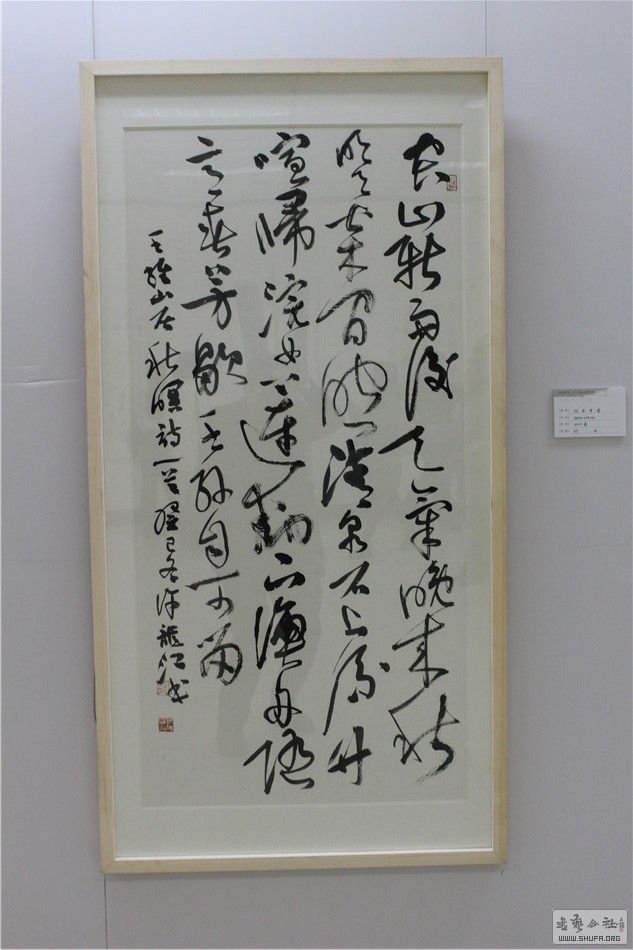 空山新雨後天氣晚來秋
明月松間照清泉石上流竹
喧歸浣女蓮動下漁舟隨
意春芳歇王孫自可留
王維山居秋暝詩一首癸巳冬許龍江书
書藝公社
WWW.SHUFA.ORG